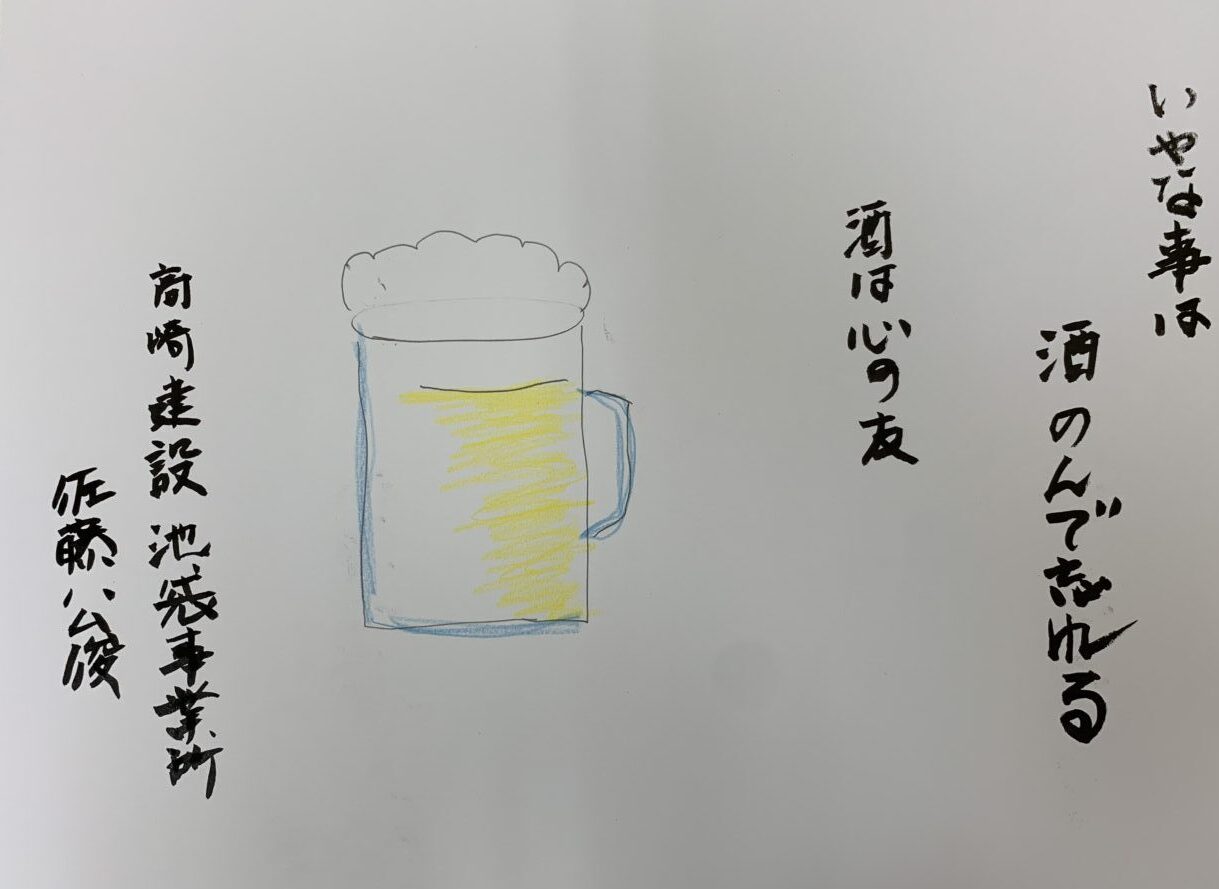 いやな事は
酒のんで忘れる
酒は心の友
高崎建設池袋事業所
佐藤公俊